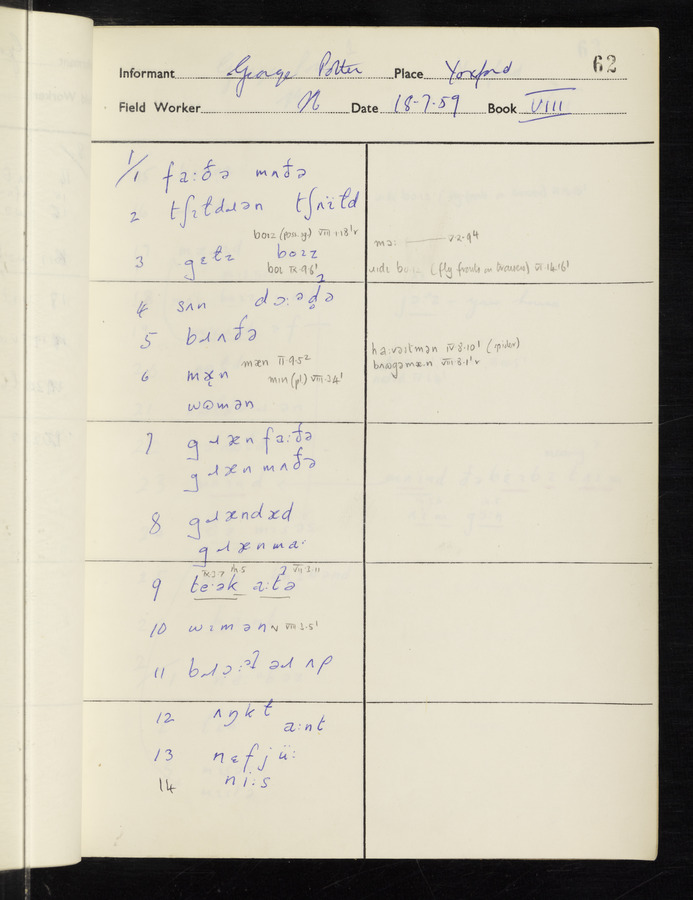 62
Informant George Potter Place Yoxford
Field Worker N Date 18-7-59 Book VIII
1/1 fa:ðə mʌðə
2 tʃɪldɹən tʃʌïld
bɔɪz (poss. sg.) VIII·1·18'r
3 gɛlz bɔɪz
bɔɪ IX·9·6'
mə: — V·2·9⁴
bɔɪz (fly fronts on trousers) VI·14·16'
4 sʌn dɔ:ədə
5 bɹʌðə
6 mæn mæn II·9·5²
mɪn (pl) VIII·3·4'
wʊmən
ha:vəstmən IV·8·10' (spider)
VIII·3·1'r
7 gɹæn fa:ðə
gɹæn mʌðə
8 gɹændæd
gɹænma·
9 te·ək a:tə
VII·2·11
10 wɪmən VIII·2·5'
11 bɹɔ:ʔ əɹ ʌp
12 ʌŋkl
a:nt
13 nɛfjü:
14 ni:s